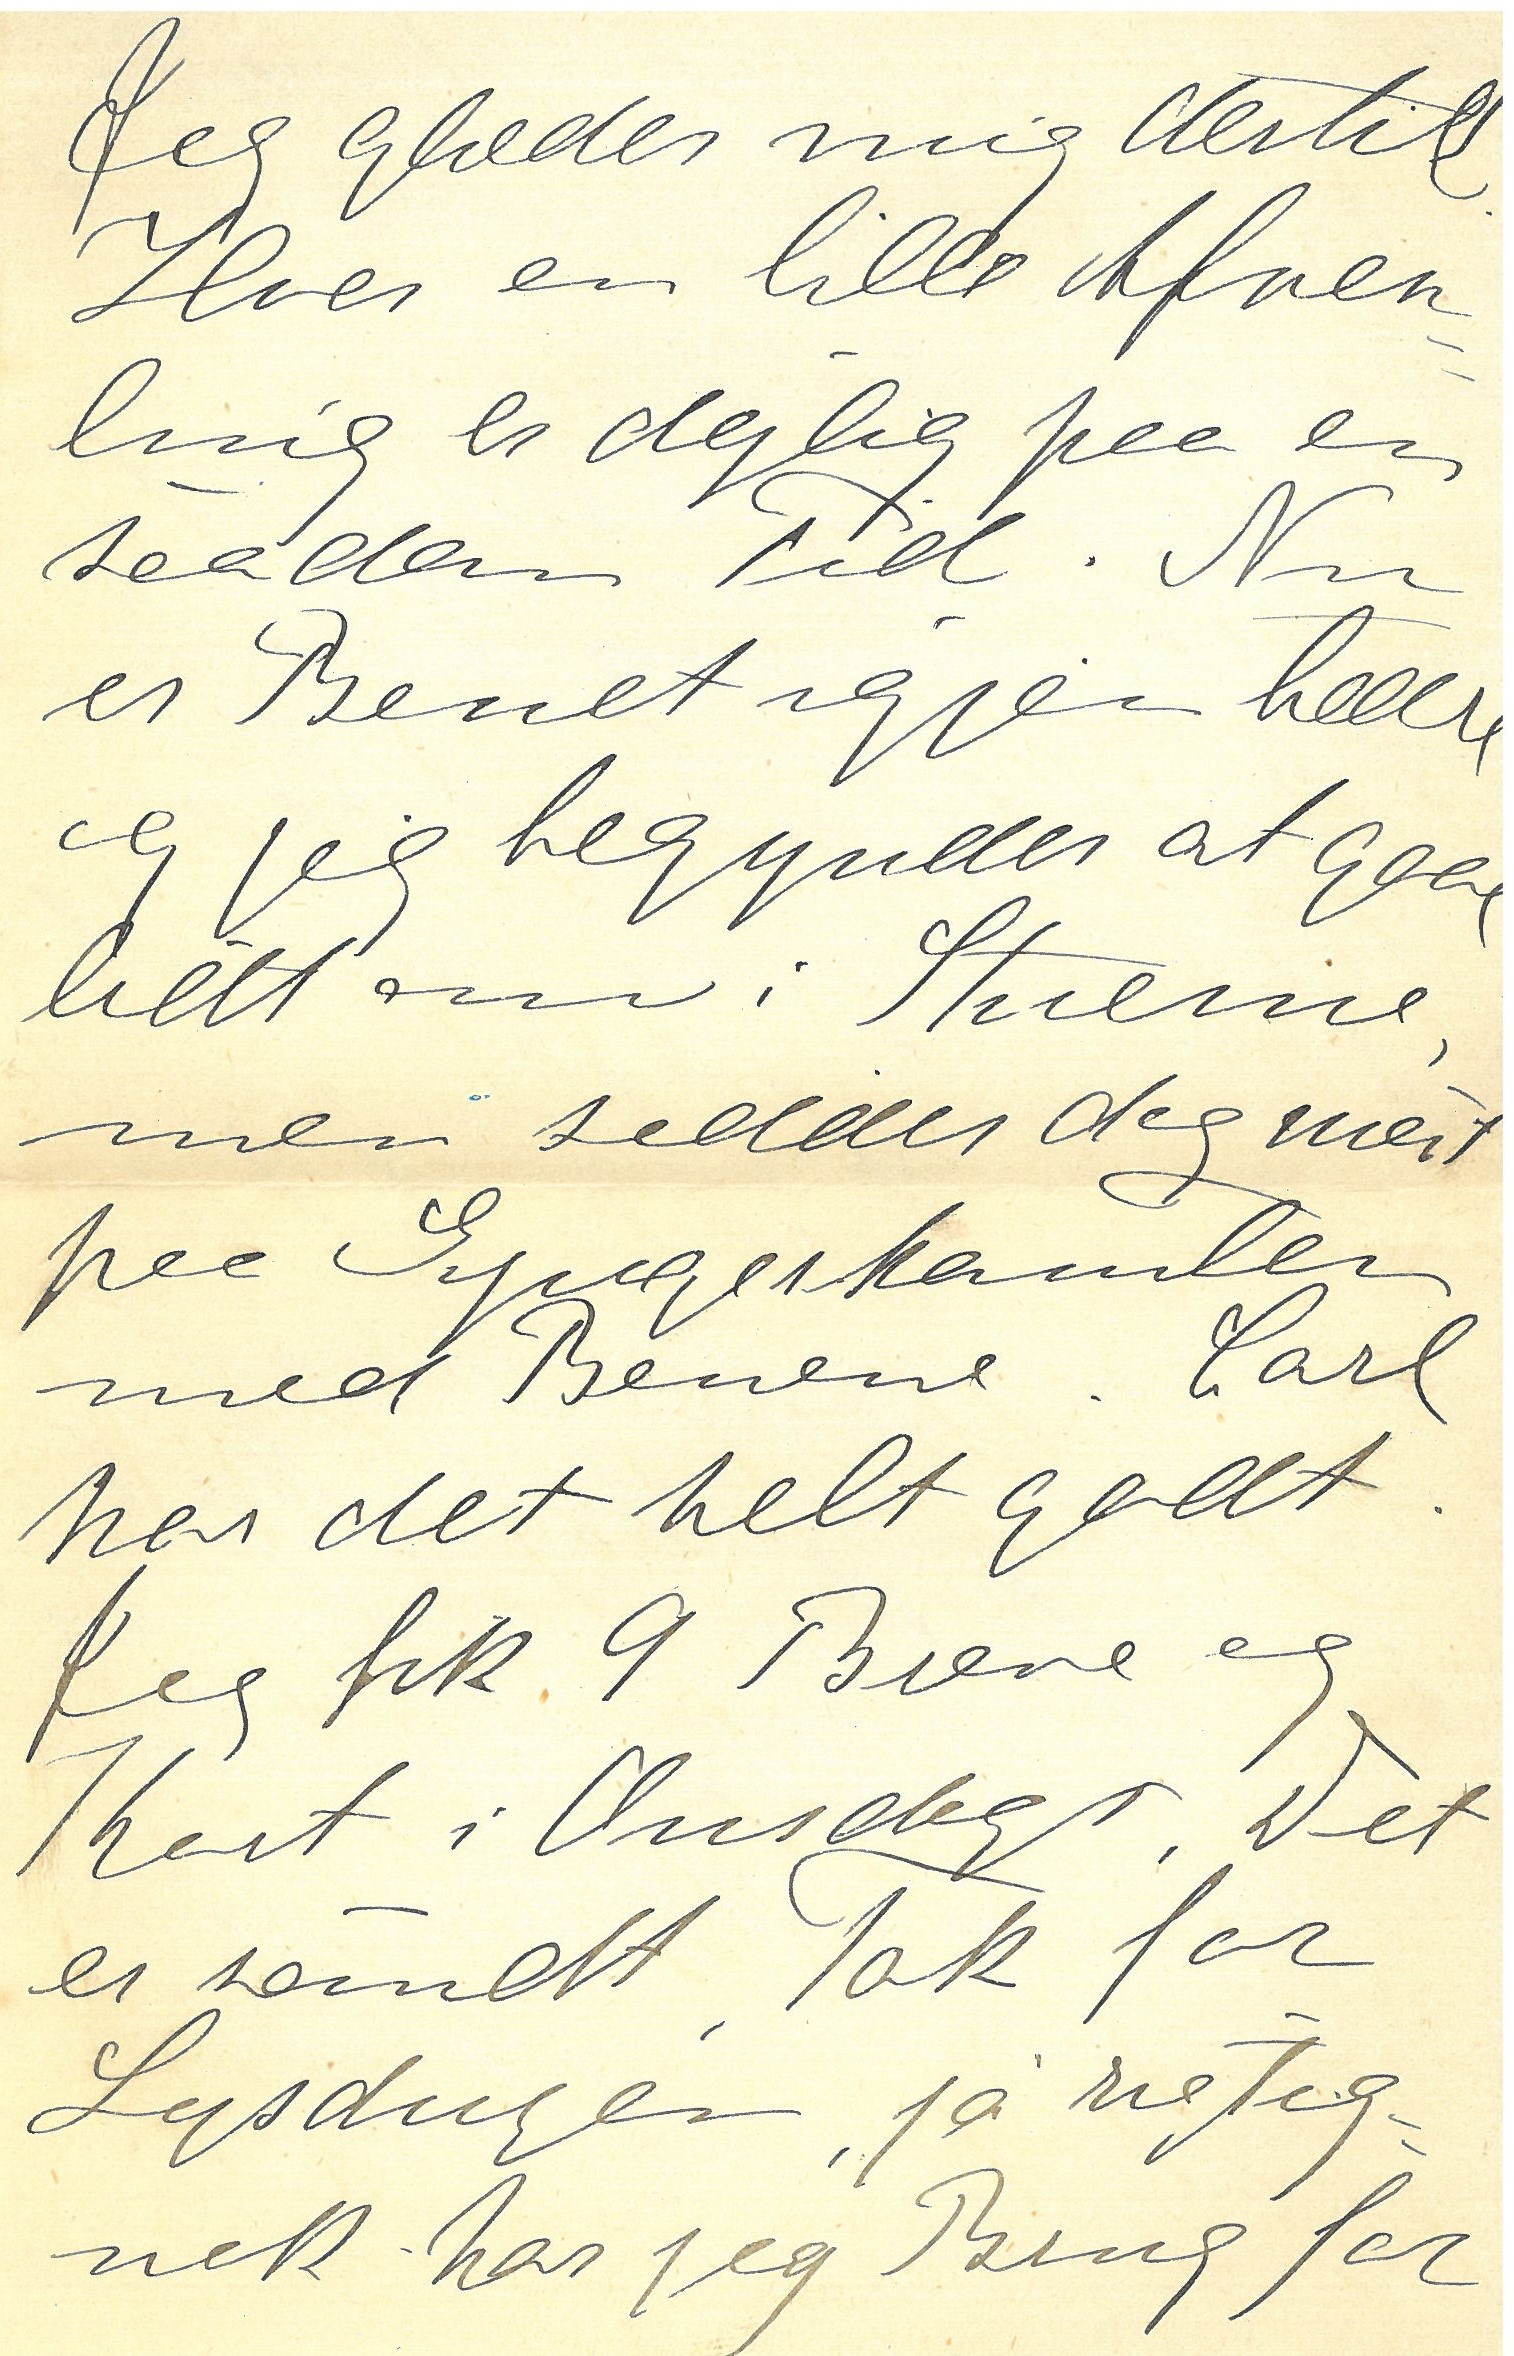 Jeg glæder mig dertil.
Hver en lille Afvex=
ling er dejlig paa en
saadan Tid. Nu
er Benet igjen bedre
og jeg begynder at gaa
lidt om i Stuerne,
men sidder dog mest
paa Gyngeskamlen
med Benene. Carl
har det helt godt.
Jeg fik 9 Breve og
Kort i Onsdags. Det
er sendt, Tak for
Lysdugen, ja rigtig=
nok har jeg Brug for